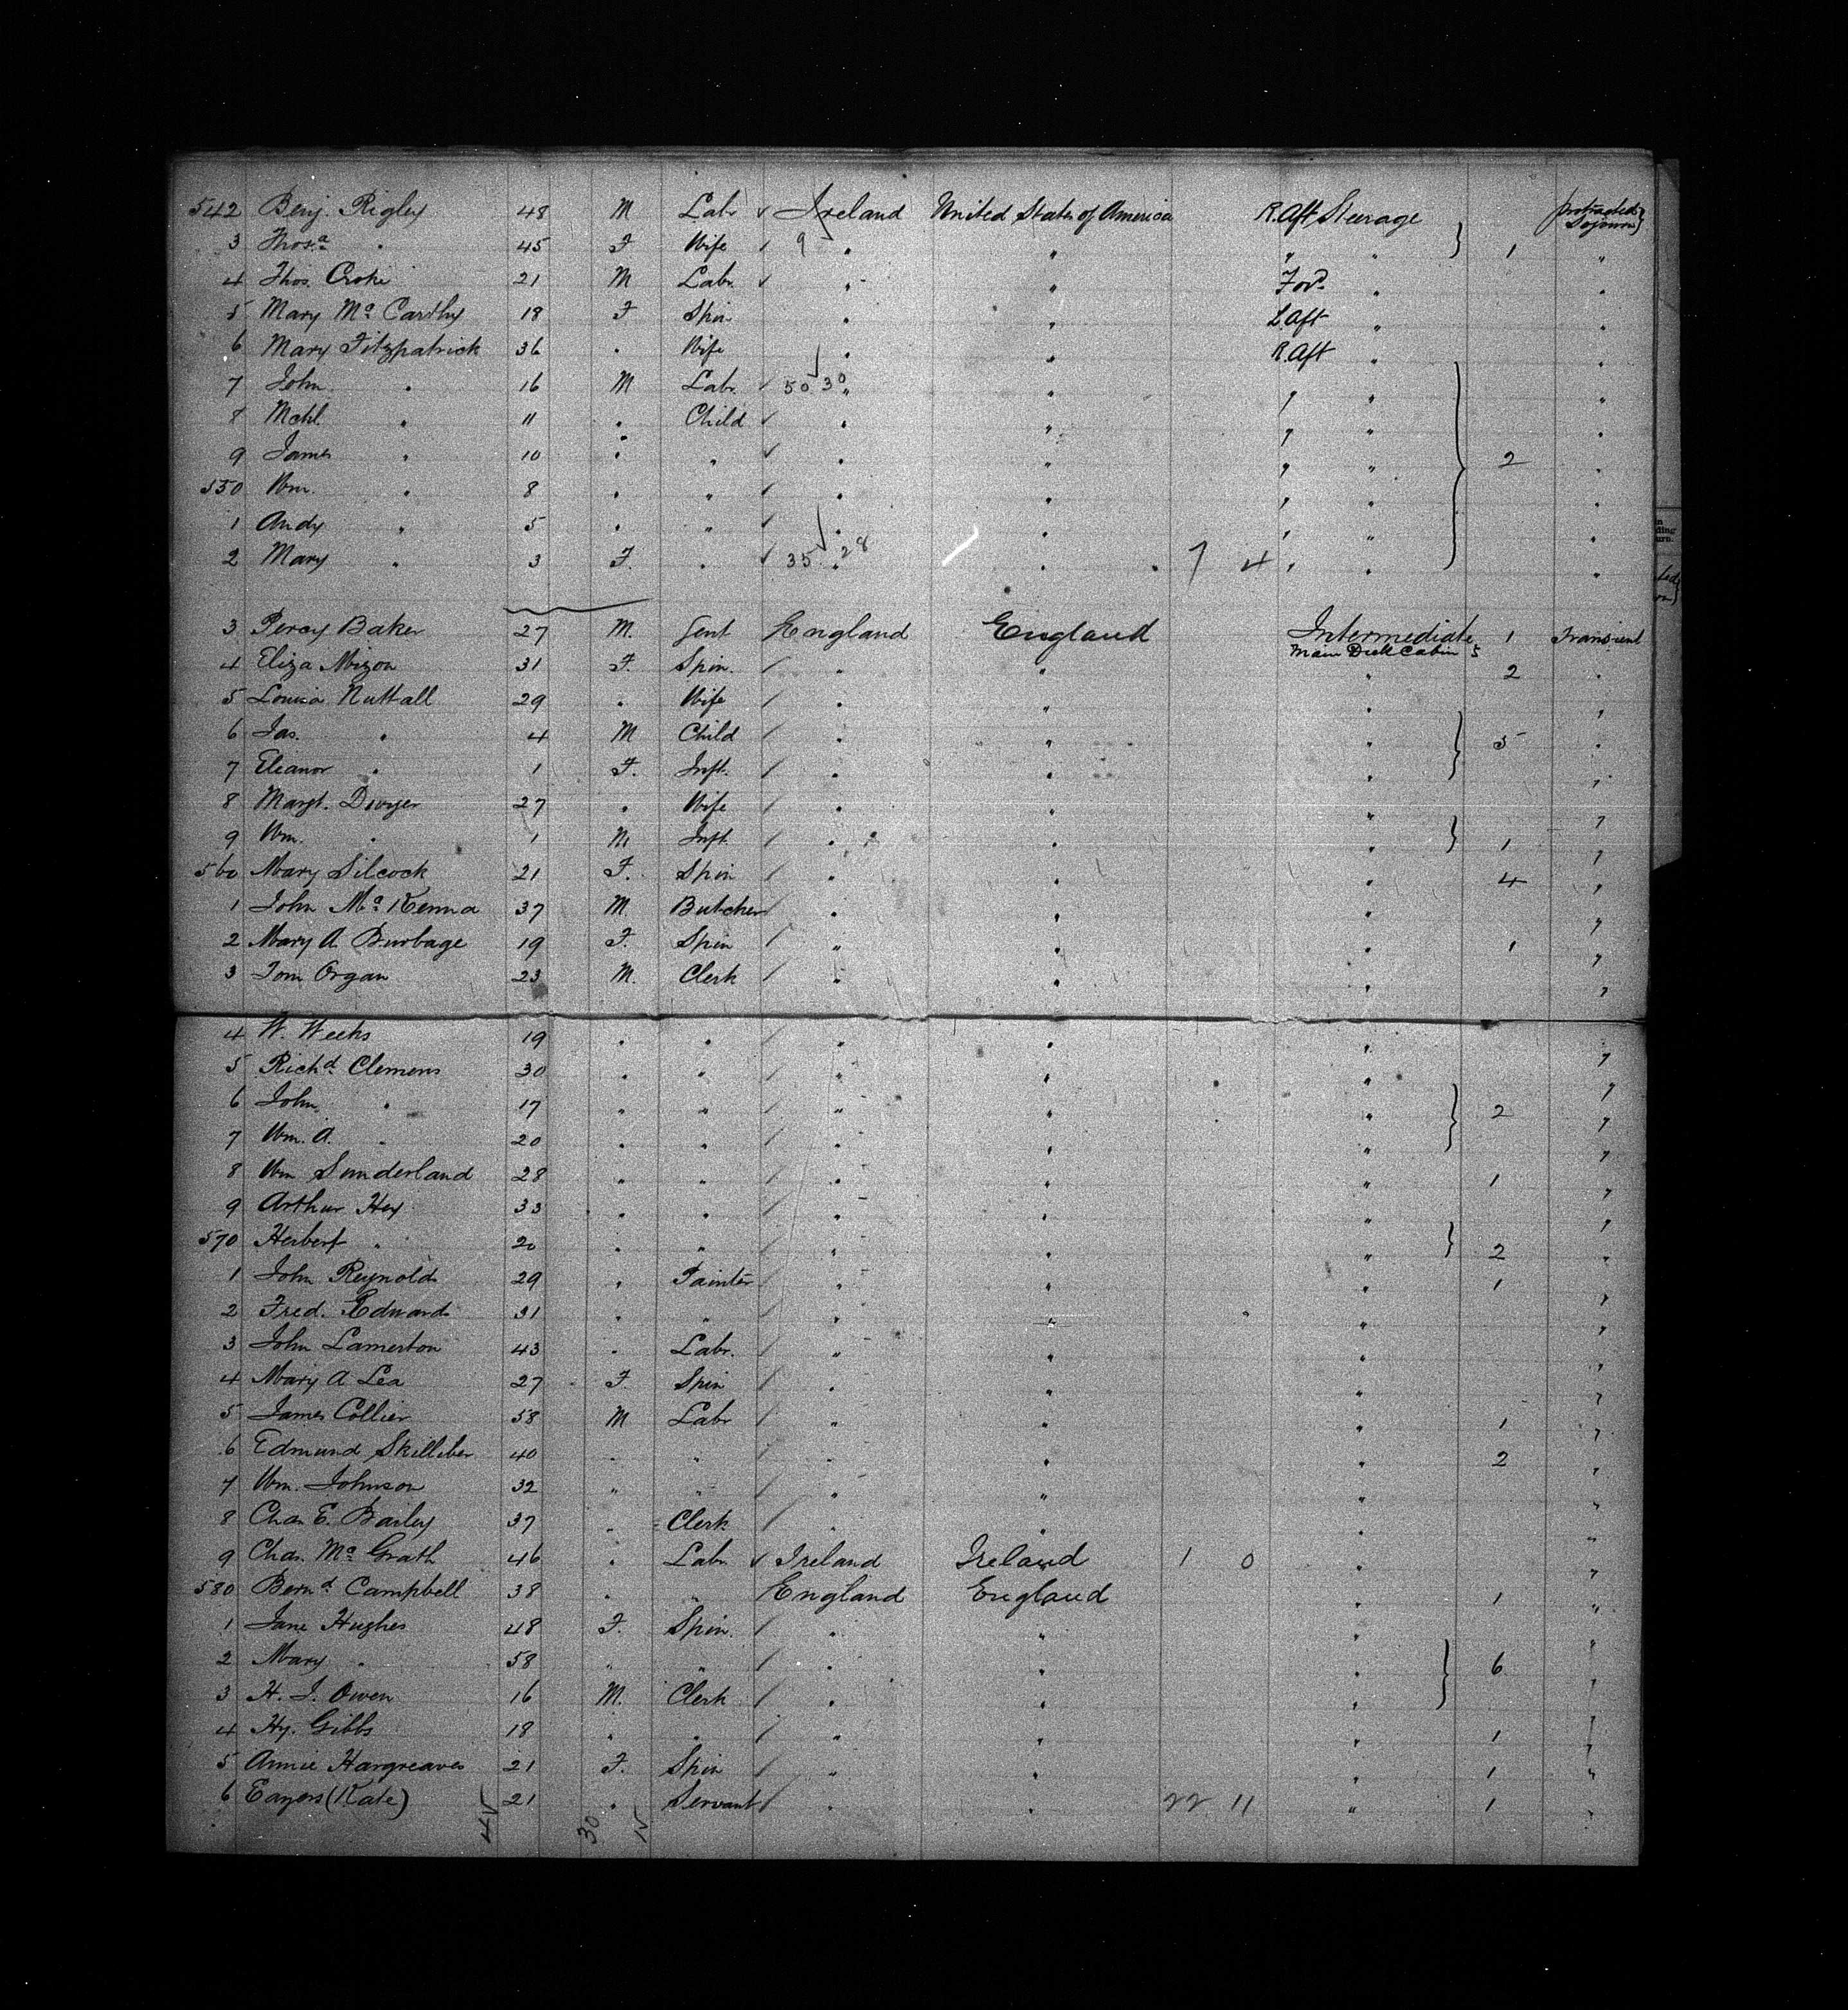 542 Benj. Rigley 48 M Labr ✓ Ireland United States of America R. Aft Steerage protracted Sojourn
3 Thosa " 45 F Wife 9 " " " " 1 "
4 Thos. Croke 21 M Labr ✓ " " Ford. " "
5 Mary Mc Carthy 18 F Spin " " L. Aft " "
6 Mary Fitzpatrick 36 " Wife " " R. Aft " "
7 John " 16 M Labr. ✓ 50 30 " " " " "
8 Mchl. " 11 " Child ✓ " " " " "
9 James " 10 " " ✓ " " " " 2 "
550 Wm. " 8 " " ✓ " " " " "
1 Andy " 5 " " ✓ " " " " "
2 Mary " 3 F. " ✓ 35 28 " " 7 4 " " "
3 Percy Baker 27 M. Gent England England Intermediate 1 Transient
Main Deck Cabin 5
4 Eliza Mizon 31 F. Spin. / " " " 2 "
5 Louisa Nuttall 29 " Wife / " " " "
6 Jas. " 4 M Child / " " " 5 "
7 Eleanor " 1 F. Inft. / " " " "
8 Margt. Dwyer 27 " Wife / " " " "
9 Wm. " 1 M Inft. / " " " 1 "
560 Mary Silcock 21 F. Spin / " " " 4 "
1 John Mc Kenna 37 M. Butcher / " " " "
2 Mary A. Burbage 19 F. Spin / " " " 1 "
3 Tom Organ 23 M. Clerk / " " " "
4 W. Weeks 19 " " / " " " "
5 Richd. Clemens 30 " " / " " " "
6 John " 17 " " / " " " 2 "
7 Wm. A. " 20 " " / " " " "
8 Wm Sunderland 28 " " / " " " 1 "
9 Arthur Hey 33 " " / " " " "
570 Herbert " 20 " " / " " " 2 "
1 John Reynolds 29 " Painter / " " " 1 "
2 Fred. Edwards 31 " " / " " " "
3 John Lamerton 43 " Labr. / " " " "
4 Mary A Lea 27 F. Spin / " " " "
5 James Collier 58 M Labr / " " " 1 "
6 Edmund Skilliber 40 " " / " " " 2 "
7 Wm. Johnson 32 " " / " " " "
8 Chas E. Bailey 37 " Clerk / " " " "
9 Chas. Mc Grath 46 " Labr ✓ Ireland Ireland 1 0 " "
580 Bernd. Campbell 38 " " England England " 1 "
1 Jane Hughes 48 F. Spin. / " " " "
2 Mary " 58 " " / " " " 6 "
3 H. J. Owen 16 M. Clerk / " " " "
4 Hy. Gibbs 18 " " / " " " 1 "
5 Annie Hargreaves 21 F. Spin / " " " 1 "
6 Eayers (Kate) 21 " Servant / " " 22 11 " 1 "
45 30 15